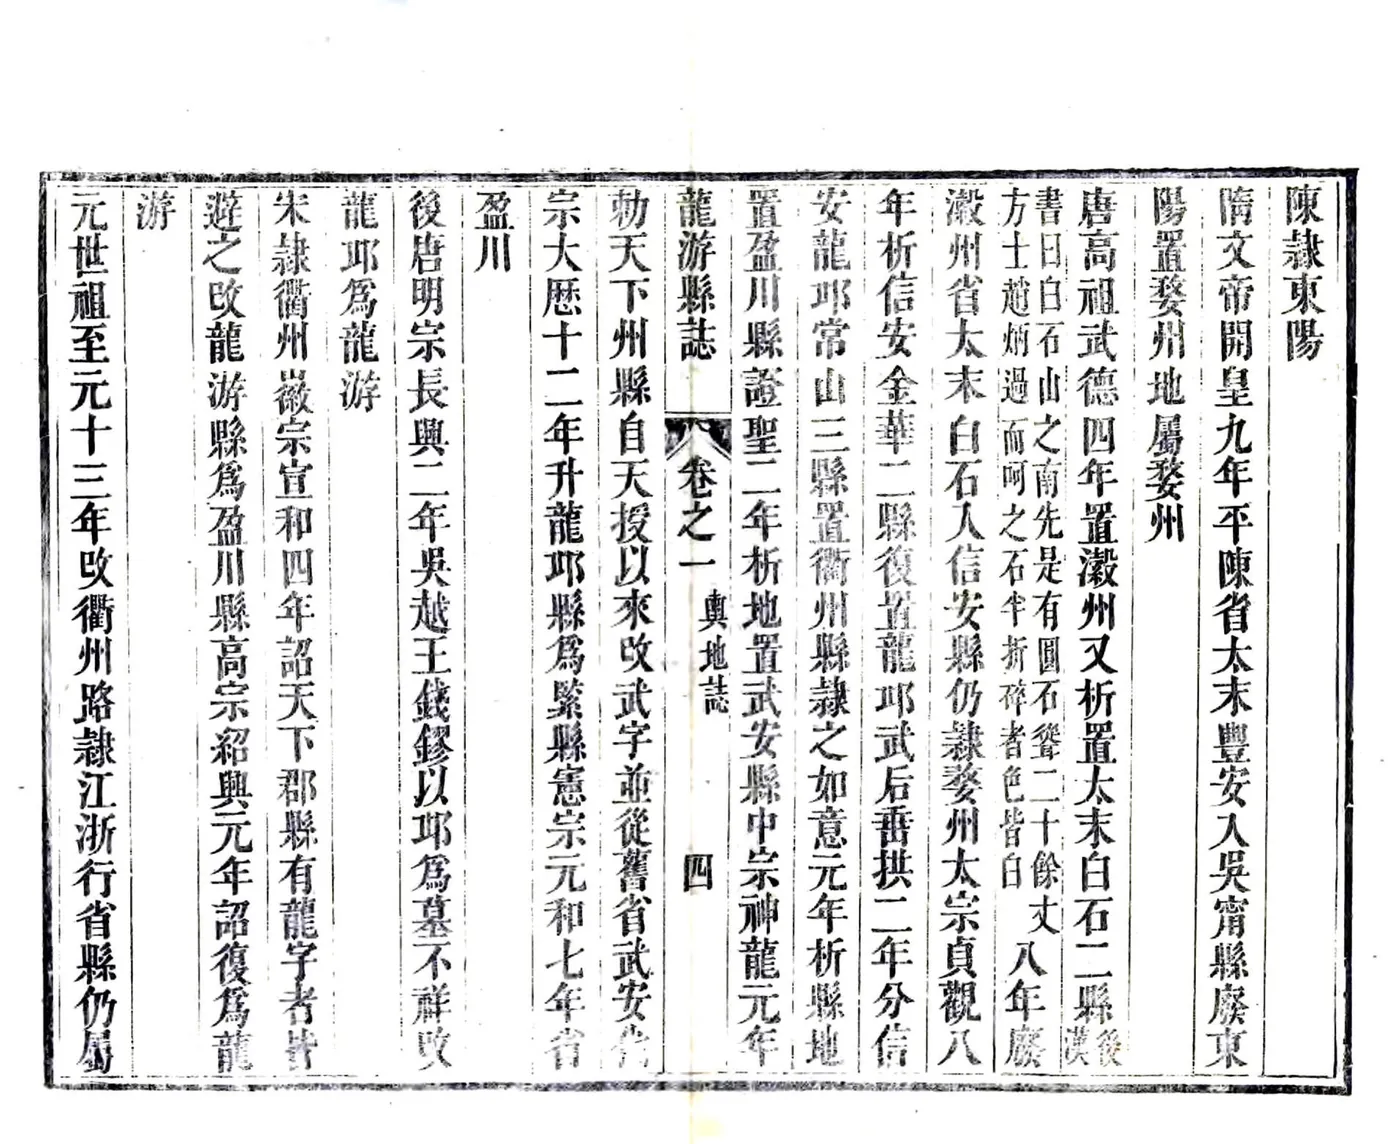 陳隸東陽
隋文帝開皇九年平陳省太末豐安入吳甯縣廢東
陽置婺州地屬婺州
唐高祖武德四年置瀫州又析置太末白石二縣後漢
書曰白石山之南先是有圓石聳二十餘丈
方士趙炳過而呵之石半折碎者色皆白
八年廢
瀫州省太末白石入信安縣仍隸婺州太宗貞觀八
年析信安金華二縣復置龍邱武后垂拱二年分信
安龍邱常山三縣置衢州縣隸之如意元年析縣地
置盈川縣證聖二年析地置武安縣中宗神龍元年
龍游縣誌 卷之一 輿地誌 四
勅天下州縣自天授以來改武字並從舊省武安代
宗大厯十二年升龍邱縣爲緊縣憲宗元和七年省
盈川
後唐明宗長興二年吳越王錢鏐以邱爲墓不祥改
龍邱爲龍游
宋隸衢州徽宗宣和四年詔天下郡縣有龍字者皆
避之改龍游縣爲盈川縣高宗紹興元年詔復爲龍
游
元世祖至元十三年改衢州路隸江浙行省縣仍屬